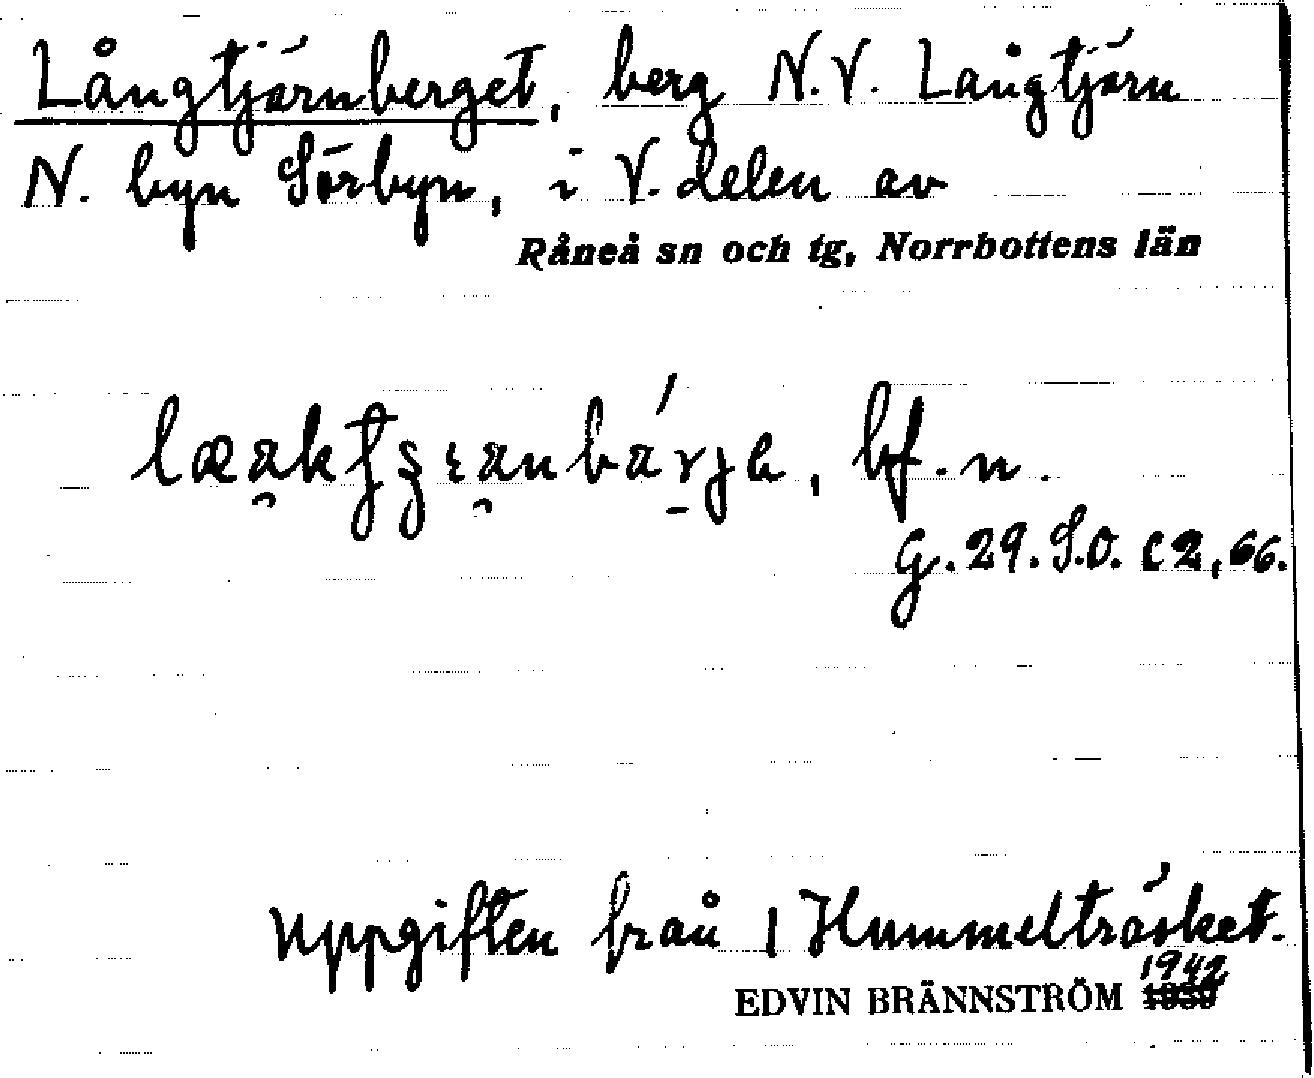 Långtjärnberget, berg N.V. Långtjärn
N. byn Sörbyn, i V. delen av
Råneå sn och tg, Norrbottens län
bf. n.
G. 29. S.O. C2, 66.
Uppgiften från 1 Hummelträsket.
1942
EDVIN BRÄNNSTRÖM 1939